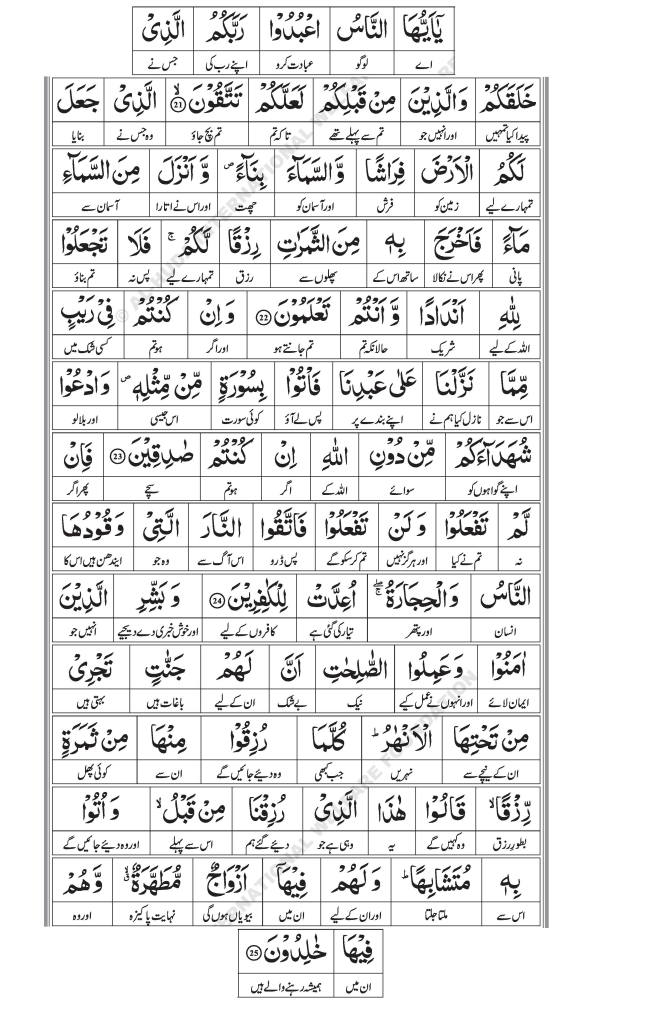 يٰٓاَيُّهَا النَّاسُ اعْبُدُوْا رَبَّكُمُ الَّذِىْ
اے لوگو عبادت کرو اپنے رب کی جس نے
خَلَقَكُمْ وَالَّذِيْنَ مِنْ قَبْلِكُمْ لَعَلَّكُمْ تَتَّقُوْنَ ۙ 21 الَّذِىْ جَعَلَ
پیدا کیا تمہیں اور انہیں جو تم سے پہلے تھے تاکہ تم تم بچ جاؤ وہ جس نے بنایا
لَكُمُ الْاَرْضَ فِرَاشًا وَّالسَّمَآءَ بِنَآءً ص وَّ اَنْزَلَ مِنَ السَّمَآءِ
تمہارے لیے زمین کو فرش اور آسمان کو چھت اور اس نے اتارا آسمان سے
مَآءً فَاَخْرَجَ بِهٖ مِنَ الثَّمَرٰتِ رِزْقًا لَّكُمْ ۚ فَلَا تَجْعَلُوْا
پانی پھر اس نے نکالا ساتھ اس کے پھلوں سے رزق تمہارے لیے پس نہ تم بناؤ
لِلّٰهِ اَنْدَادًا وَّ اَنْتُمْ تَعْلَمُوْنَ 22 وَ اِنْ كُنْتُمْ فِىْ رَيْبٍ
اللہ کے لیے شریک حالانکہ تم تم جانتے ہو اور اگر ہو تم کسی شک میں
مِّمَّا نَزَّلْنَا عَلٰى عَبْدِنَا فَاْتُوْا بِسُوْرَةٍ مِّنْ مِّثْلِهٖ ص وَ ادْعُوْا
اس سے جو نازل کیا ہم نے اپنے بندے پر پس لے آؤ کوئی سورت اس جیسی اور بلا لو
شُهَدَآءَكُمْ مِّنْ دُوْنِ اللّٰهِ اِنْ كُنْتُمْ صٰدِقِيْنَ 23 فَاِنْ
اپنے گواہوں کو سوائے اللہ کے اگر ہو تم سچے پھر اگر
لَّمْ تَفْعَلُوْا وَ لَنْ تَفْعَلُوْا فَاتَّقُوا النَّارَ الَّتِىْ وَقُوْدُهَا
نہ تم نے کیا اور ہرگز نہیں تم کر سکو گے پس ڈرو اس آگ سے وہ جو ایندھن ہیں اس کا
النَّاسُ وَ الْحِجَارَةُ ۖۚ اُعِدَّتْ لِلْكٰفِرِيْنَ 24 وَ بَشِّرِ الَّذِيْنَ
انسان اور پتھر تیار کی گئی ہے کافروں کے لیے اور خوش خبری دے دیجیے انہیں جو
اٰمَنُوْا وَ عَمِلُوا الصّٰلِحٰتِ اَنَّ لَهُمْ جَنّٰتٍ تَجْرِىْ
ایمان لائے اور انہوں نے عمل کیے نیک بے شک ان کے لیے باغات ہیں بہتی ہیں
مِنْ تَحْتِهَا الْاَنْهٰرُ ؕ كُلَّمَا رُزِقُوْا مِنْهَا مِنْ ثَمَرَةٍ
ان کے نیچے سے نہریں جب کبھی وہ دیئے جائیں گے ان سے کوئی پھل
رِّزْقًا ۙ قَالُوْا هٰذَا الَّذِىْ رُزِقْنَا مِنْ قَبْلُ ۙ وَ اُتُوْا
بطور رزق وہ کہیں گے یہ وہی ہے جو دیئے گئے ہم اس سے پہلے اور وہ دیئے جائیں گے
بِهٖ مُتَشَابِهًا ؕ وَ لَهُمْ فِيْهَآ اَزْوَاجٌ مُّطَهَّرَةٌ ۙ وَّ هُمْ
اس سے ملتا جلتا اور ان کے لیے ان میں بیویاں ہوں گی نہایت پاکیزہ اور وہ
فِيْهَا خٰلِدُوْنَ 25
ان میں ہمیشہ رہنے والے ہیں